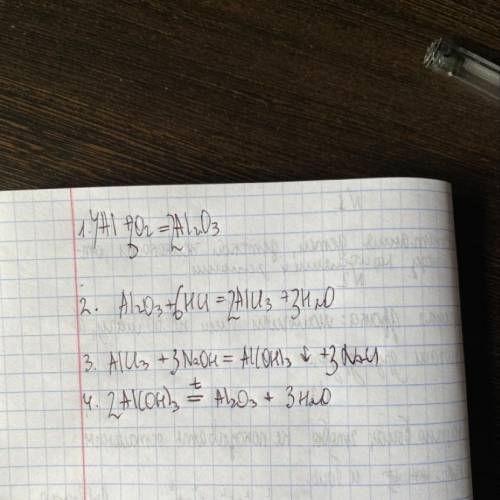 1. 4Al + 3O₂ = 2Al₂O₃
2. Al₂O₃ + 6HCl = 2AlCl₃ + 3H₂O
3. AlCl₃ + 3NaOH = Al(OH)₃ ↓ + 3NaCl
4. 2Al(OH)₃ =ᵗ Al₂O₃ + 3H₂O